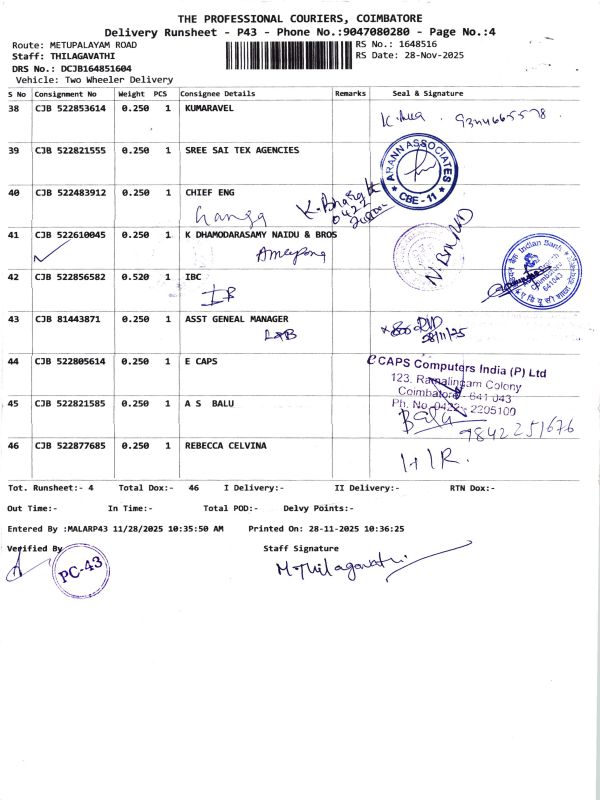 THE PROFESSIONAL COURIERS, COIMBATORE
Delivery Runsheet - P43 - Phone No.:9047080280 - Page No.:4
Route: METUPALAYAM ROAD
Staff: THILAGAVATHI
DRS No.: DCJB164851604
Vehicle: Two Wheeler Delivery
RS No.: 1648516
RS Date: 28-Nov-2025
S No Consignment No Weight PCS Consignee Details Remarks Seal & Signature
38 CJB 522853614 0.250 1 KUMARAVEL
39 CJB 522821555 0.250 1 SREE SAI TEX AGENCIES
ARANN ASSOCIATES
CBE - 11
40 CJB 522483912 0.250 1 CHIEF ENG
Ganga
K. Bharath
0422
41 CJB 522610045 0.250 1 K DHAMODARASAMY NAIDU & BROS
42 CJB 522856582 0.520 1 IBC
Indian Bank
Coimbatore
641043
43 CJB 81443871 0.250 1 ASST GENEAL MANAGER
28/11/25
44 CJB 522805614 0.250 1 E CAPS
eCAPS Computers India (P) Ltd
123, Ramalingam Colony
Coimbatore - 641 043
Ph. No. 0422 - 2205100
45 CJB 522821585 0.250 1 A S BALU
Balu
9842251676
46 CJB 522877685 0.250 1 REBECCA CELVINA
H/R.
Tot. Runsheet:- 4 Total Dox:- 46 I Delivery:- II Delivery:- RTN Dox:-
Out Time:- In Time:- Total POD:- Delvy Points:-
Entered By :MALARP43 11/28/2025 10:35:50 AM Printed On: 28-11-2025 10:36:25
Verified By Staff Signature
PC-43
M.Thilagavathi